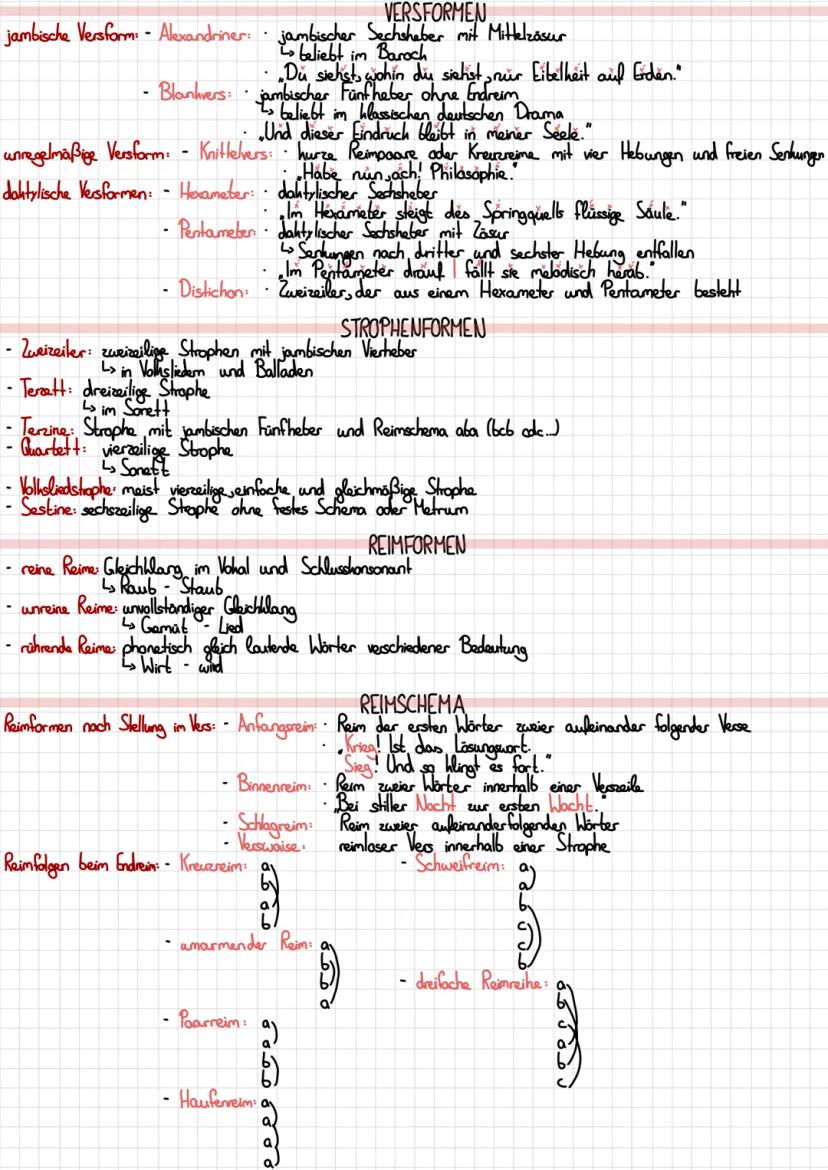 VERSFORMEN
jambische Versform: - Alexandriner: · jambischer Sechsheber mit Mittelzäsur
↳ beliebt im Barock
· „Du siehst, wohin du siehst, nur Eitelkeit auf Erden."
- Blankvers: · jambischer Fünfheber ohne Endreim
↳ beliebt im klassischen deutschen Drama
· „Und dieser Eindruck bleibt in meiner Seele."
unregelmäßige Versform: - Knittelvers: · kurze Reimpaare oder Kreuzreime mit vier Hebungen und freien Senkungen
· „Habe nun, ach! Philosophie."
daktylische Versformen: - Hexameter: · daktylischer Sechsheber
· „Im Hexameter steigt des Springquells flüssige Säule."
- Pentameter: · daktylischer Sechsheber mit Zäsur
↳ Senkungen nach dritter und sechster Hebung entfallen
· „Im Pentameter drauf | fällt sie melodisch herab."
- Distichon: · Zweizeiler, der aus einem Hexameter und Pentameter besteht
STROPHENFORMEN
- Zweizeiler: zweizeilige Strophen mit jambischen Vierheber
↳ in Volksliedern und Balladen
- Terzett: dreizeilige Strophe
↳ im Sonett
- Terzine: Strophe mit jambischen Fünfheber und Reimschema aba (bcb cdc...)
- Quartett: vierzeilige Strophe
↳ Sonett
- Volksliedstrophe: meist vierzeilige, einfache und gleichmäßige Strophe
- Sestine: sechszeilige Strophe ohne festes Schema oder Metrum
REIMFORMEN
- reine Reime: Gleichklang im Vokal und Schlusskonsonant
↳ Raub - Staub
- unreine Reime: unvollständiger Gleichklang
↳ Gemüt - Lied
- rührende Reime: phonetisch gleich lautende Wörter verschiedener Bedeutung
↳ Wirt - wird
REIMSCHEMA
Reimformen nach Stellung im Vers: - Anfangsreim: · Reim der ersten Wörter zweier aufeinander folgender Verse
· „Krieg! Ist das Lösungswort.
Sieg! Und so klingt es fort."
- Binnenreim: · Reim zweier Wörter innerhalb einer Verszeile
· „Bei stiller Nacht zur ersten Wacht."
- Schlagreim: Reim zweier aufeinanderfolgenden Wörter
- Verswaise: reimloser Vers innerhalb einer Strophe
Reimfolgen beim Endreim: - Kreuzreim:
a
b
a
b
- umarmender Reim:
a
b
b
a
- Paarreim:
a
a
b
b
- Haufenreim:
a
a
a
a
- Schweifreim:
a
a
b
c
c
b
- dreifache Reimreihe:
a
b
c
a
b
c